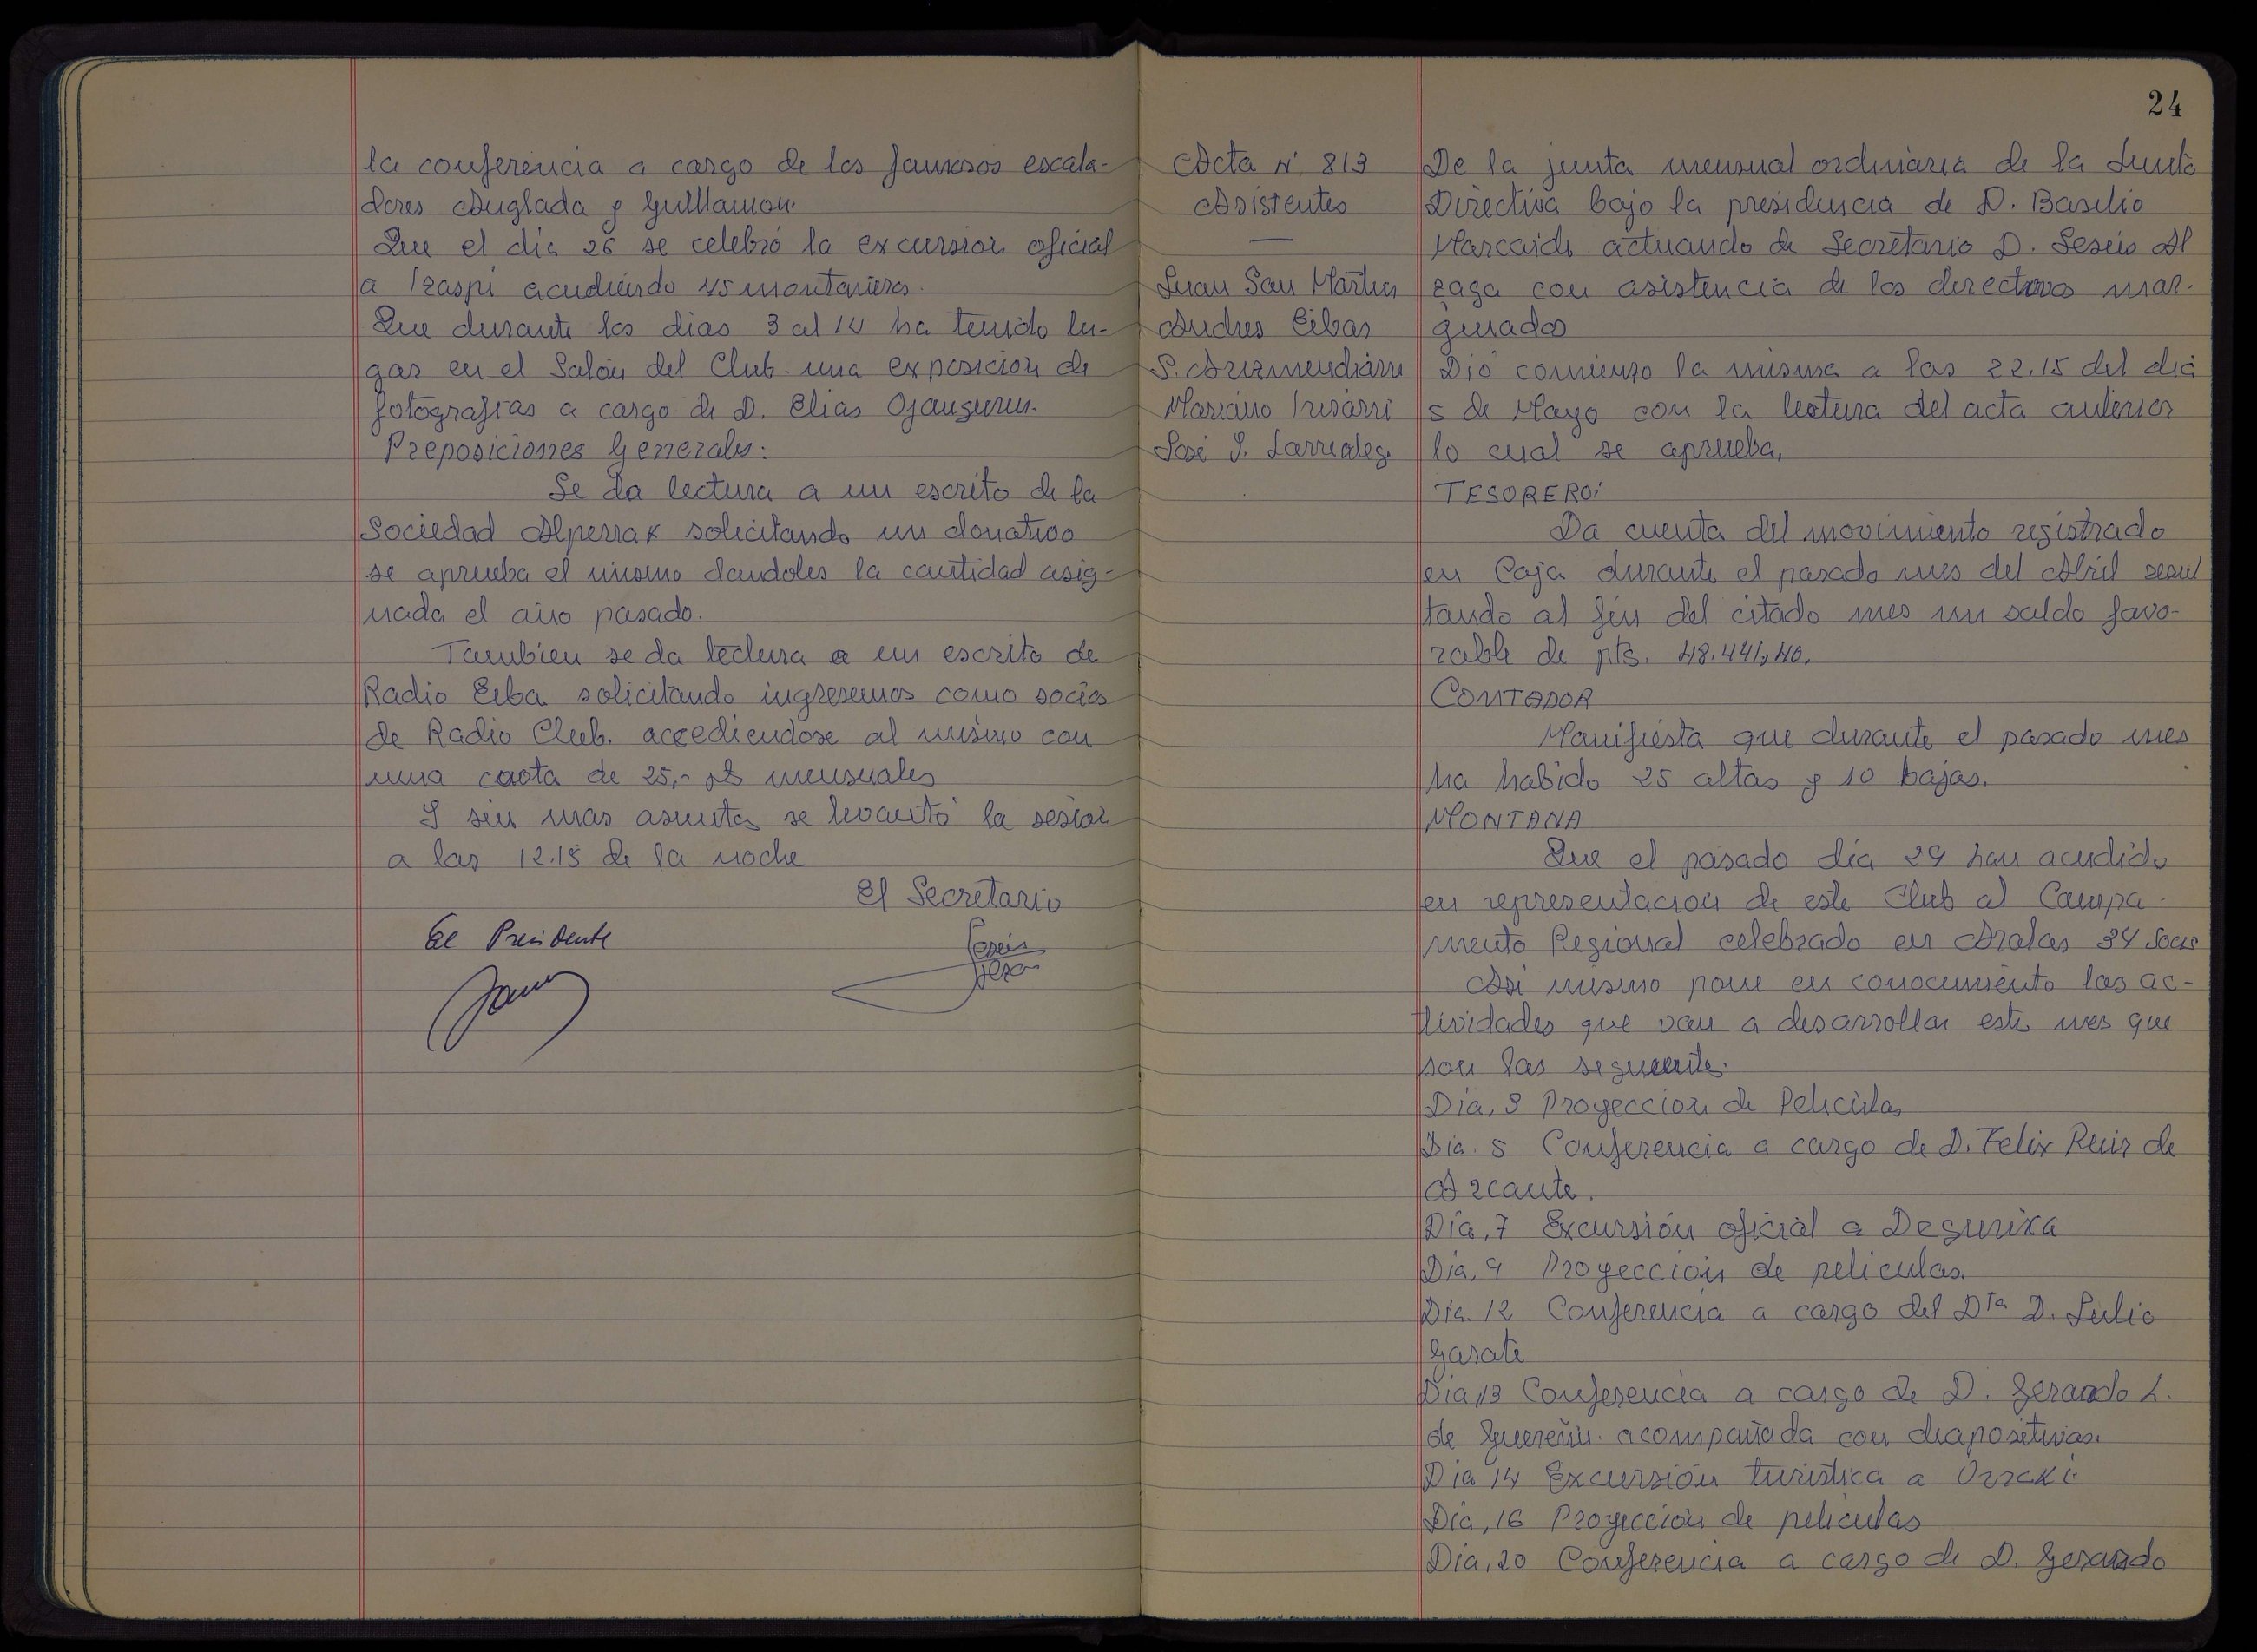 la conferencia a cargo de los famosos escala-
dores Anglada y Guillamon.
Que el dia 26 se celebró la excursion oficial
a Izaspi acudiendo 45 montañeros.
Que durante los dias 3 al 14 ha tenido lu-
gar en el Salón del Club una exposicion de
fotografias a cargo de D. Elias Ojanguren.
Preposiciones Generales:
Se da lectura a un escrito de la
Sociedad Alperrak solicitando un donativo
se aprueba el mismo dandoles la cantidad asig-
nada el año pasado.
Tambien se da lectura a un escrito de
Radio Eiba solicitando ingresemos como socios
de Radio Club. accediendose al mismo con
una cuota de 25,- pts mensuales
Y sin mas asuntos se levantó la sesion
a las 12.15 de la noche
El Secretario
El Presidente
24
Acta Nº 813
Asistentes
—
Juan San Martin
Andres Eibar
S. Arizmendiarre
Mariano Irusarri
José I. Larreateg.
De la junta mensual ordinaria de la Junta
Directiva bajo la presidencia de D. Basilio
Marcaide actuando de Secretario D. Jesús Al
zaga con asistencia de los directivos mar-
ginados
Dió comienzo la misma a las 22.15 del dia
5 de Mayo con la lectura del acta anterior
lo cual se aprueba.
TESORERO:
Da cuenta del movimiento registrado
en Caja durante el pasado mes del Abril resul
tando al fin del citado mes un saldo favo-
rable de pts. 48.441,40.
CONTADOR
Manifiesta que durante el pasado mes
ha habido 25 altas y 10 bajas.
MONTANA
Que el pasado día 29 han acudido
en representacion de este Club al Campa-
mento Regional celebrado en Aralar 34 Socios
Asi mismo pone en conocimiento las ac-
tividades que van a desarrollar este mes que
son las seguente.
Dia, 3 Proyeccion de Peliculas
Dia. 5 Conferencia a cargo de D. Felix Ruiz de
Arcaute.
Día, 7 Excursión oficial a Degurixa
Dia, 9 Proyección de peliculas.
Dia. 12 Conferencia a cargo del Dta D. Julio
Garate
Dia 13 Conferencia a cargo de D. Gerardo L.
de Guereñu. acompañada con diapositivas.
Dia 14 Excursión turistica a Urraki.
Dia, 16 Proyección de peliculas
Dia, 20 Conferencia a cargo de D. Gerardo